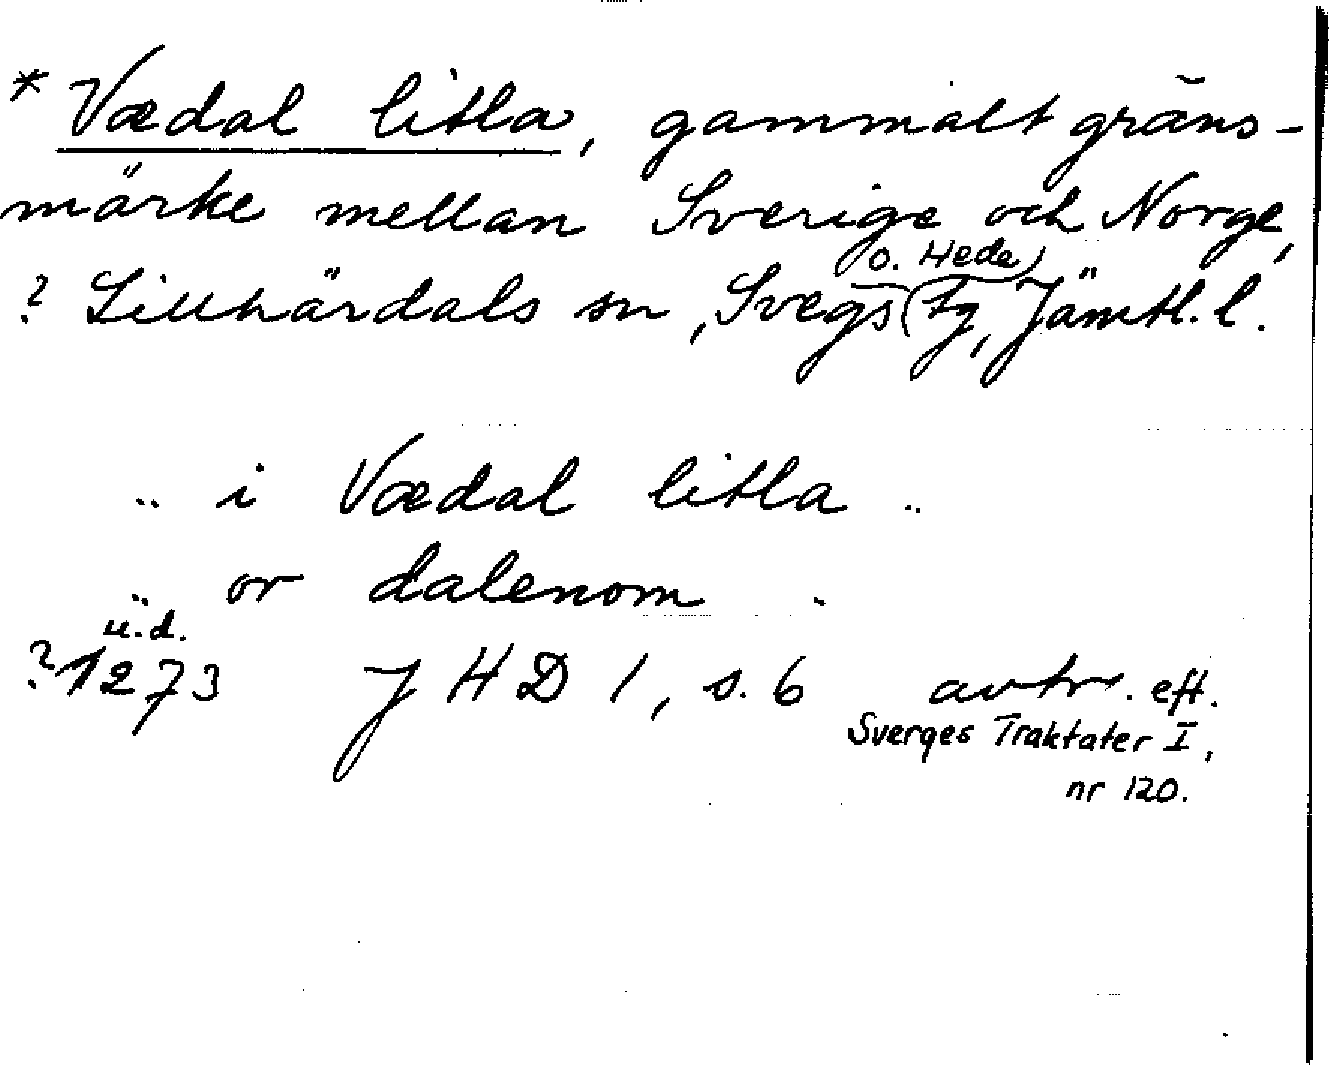 * Vædal litla, gammalt gräns-
märke mellan Sverige och Norge,
? Lillhärdals sn, Svegs (o. Hede) tg, Jämtl. l.
.. i Vædal litla ..
.. or dalenom .
u.d.
? 1273 JHD 1, s. 6 avtr. eft.
Sverges Traktater I,
nr 120.